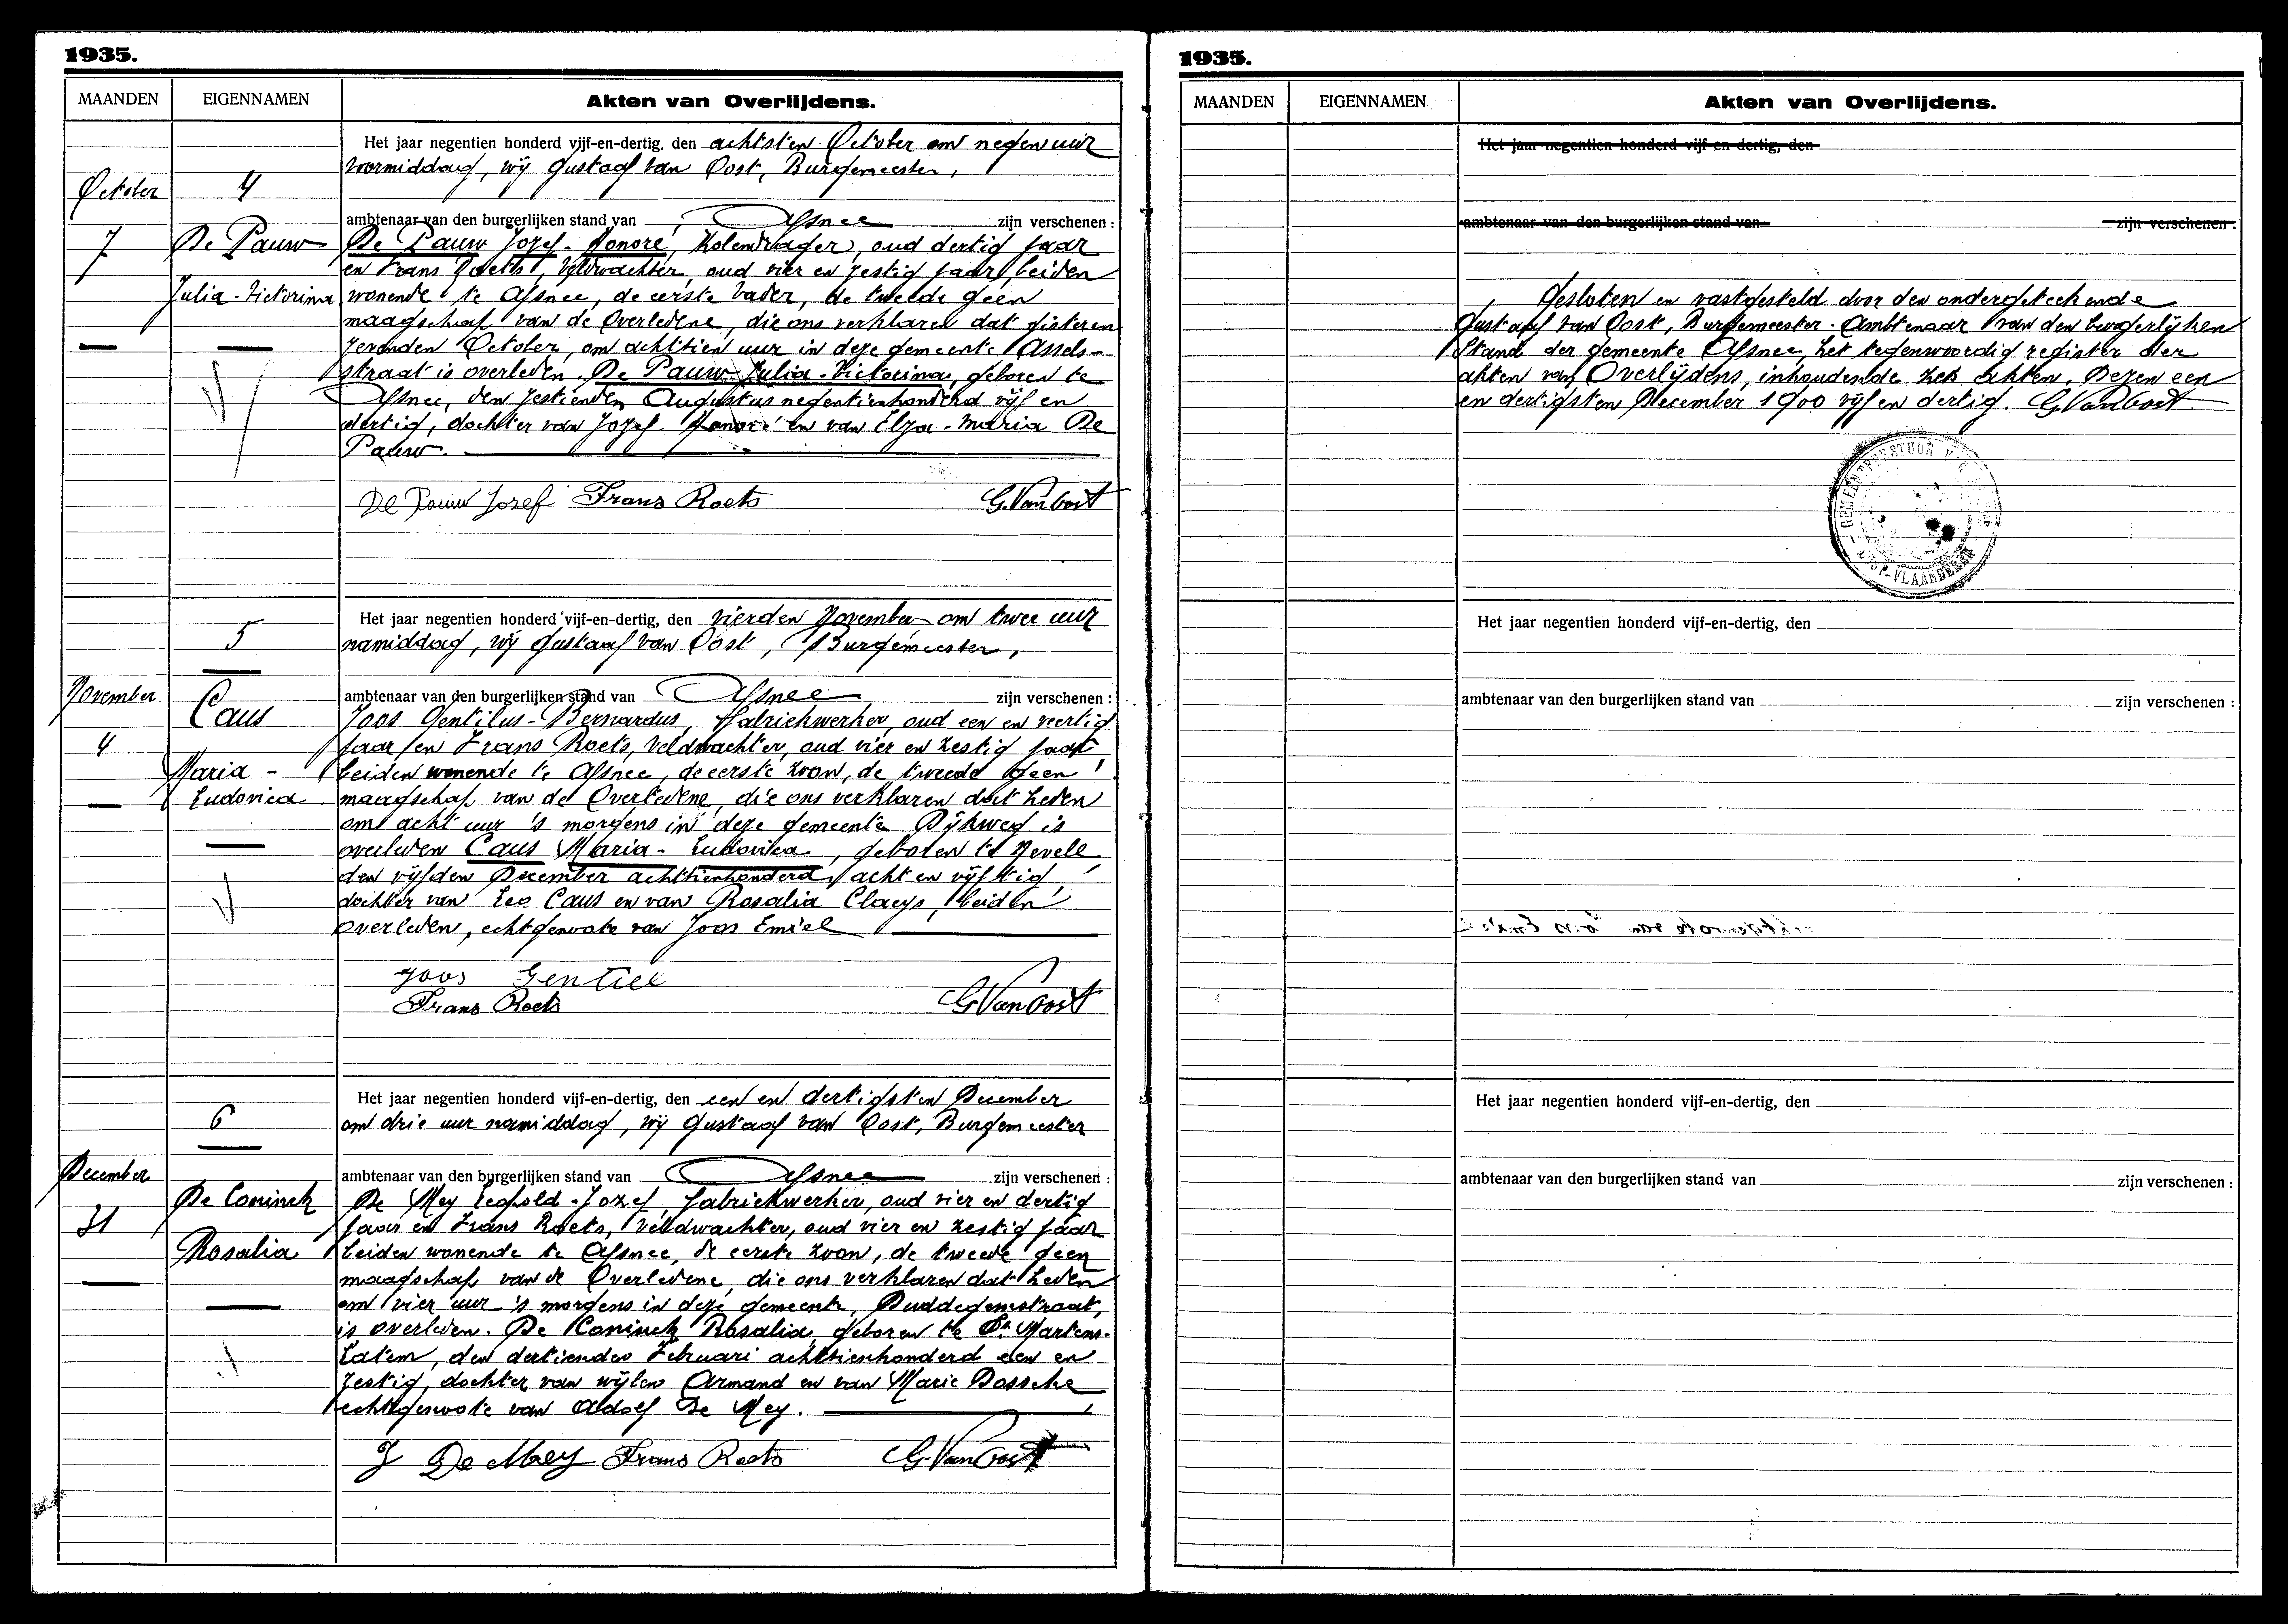 1935.
MAANDEN EIGENNAMEN Akten van Overlijdens.
Het jaar negentien honderd vijf-en-dertig, den achtsten October om negen uur
voormiddag, wij Gustaaf Van Oost, Burgemeester,
October 4
ambtenaar van den burgerlijken stand van Afsnee zijn verschenen :
7 De Pauw De Pauw Jozef-Honoré, Kolendrager, oud dertig jaar
en Frans Roets, Veldwachter, oud vier en zestig jaar, beiden
Julia-Victorina wonende te Afsnee, de eerste vader, de tweede geen
maagschap van de Overledene, die ons verklaren dat gisteren
zevenden October, om achttien uur in deze gemeente Assels-
straat is overleden. De Pauw Julia-Victorina, geboren te
Afsnee, den zestienden Augustus negentienhonderd vijf en
dertig, dochter van Jozef-Honoré en van Elza-Maria De
Pauw.
De Pauw Jozef Frans Roets G. Van Oost
Het jaar negentien honderd vijf-en-dertig, den vierden November om twee uur
5 namiddag, wij Gustaaf Van Oost, Burgemeester,
November Caus ambtenaar van den burgerlijken stand van Afsnee zijn verschenen :
Joos Gentilus-Bernardus, fabriekwerker, oud een en veertig
4 jaar en Frans Roets, Veldwachter, oud vier en zestig jaar
Maria - beiden wonende te Afsnee, de eerste zoon, de tweede geen
Ludovica maagschap van de Overledene, die ons verklaren dat heden
om acht uur 's morgens in deze gemeente Dijkweg is
overleden Caus Maria-Ludovica, geboren te Nevele
den vijfden December achttienhonderd acht en vijftig,
dochter van Leo Caus en van Rosalia Claeys, beiden
overleden, echtgenoote van Joos Emiel
Joos Gentiel
Frans Roets G. Van Oost
Het jaar negentien honderd vijf-en-dertig, den een en dertigsten December
6 om drie uur namiddag, wij Gustaaf Van Oost, Burgemeester
December ambtenaar van den burgerlijken stand van Afsnee zijn verschenen :
De Coninck De Mey Leopold-Jozef, fabriekwerker, oud vier en dertig
31 jaar en Frans Roets, Veldwachter, oud vier en zestig jaar
Rosalia beiden wonende te Afsnee, de eerste zoon, de tweede geen
maagschap van de Overledene, die ons verklaren dat heden
om vier uur 's morgens in deze gemeente, Duddegemstraat,
is overleden. De Coninck Rosalia, geboren te St Martens-
Latem, den dertienden Februari achttienhonderd een en
zestig, dochter van wijlen Armand en van Marie Bossche
echtgenoote van Adolf De Mey.
J De Mey Frans Roets G. Van Oost
1935.
MAANDEN EIGENNAMEN Akten van Overlijdens.
Het jaar negentien honderd vijf-en-dertig, den
ambtenaar van den burgerlijken stand van zijn verschenen :
Gesloten en vastgesteld door den ondergeteekende
Gustaaf Van Oost, Burgemeester-Ambtenaar van den burgerlijken
Stand der gemeente Afsnee, het tegenwoordig register der
akten van Overlijdens, inhoudende zes akten. Dezen een
en dertigsten December 1900 vijf en dertig. G. Van Oost
GEMEENTEBESTUUR
OOST-VLAANDEREN
Het jaar negentien honderd vijf-en-dertig, den
ambtenaar van den burgerlijken stand van zijn verschenen :
Het jaar negentien honderd vijf-en-dertig, den
ambtenaar van den burgerlijken stand van zijn verschenen :